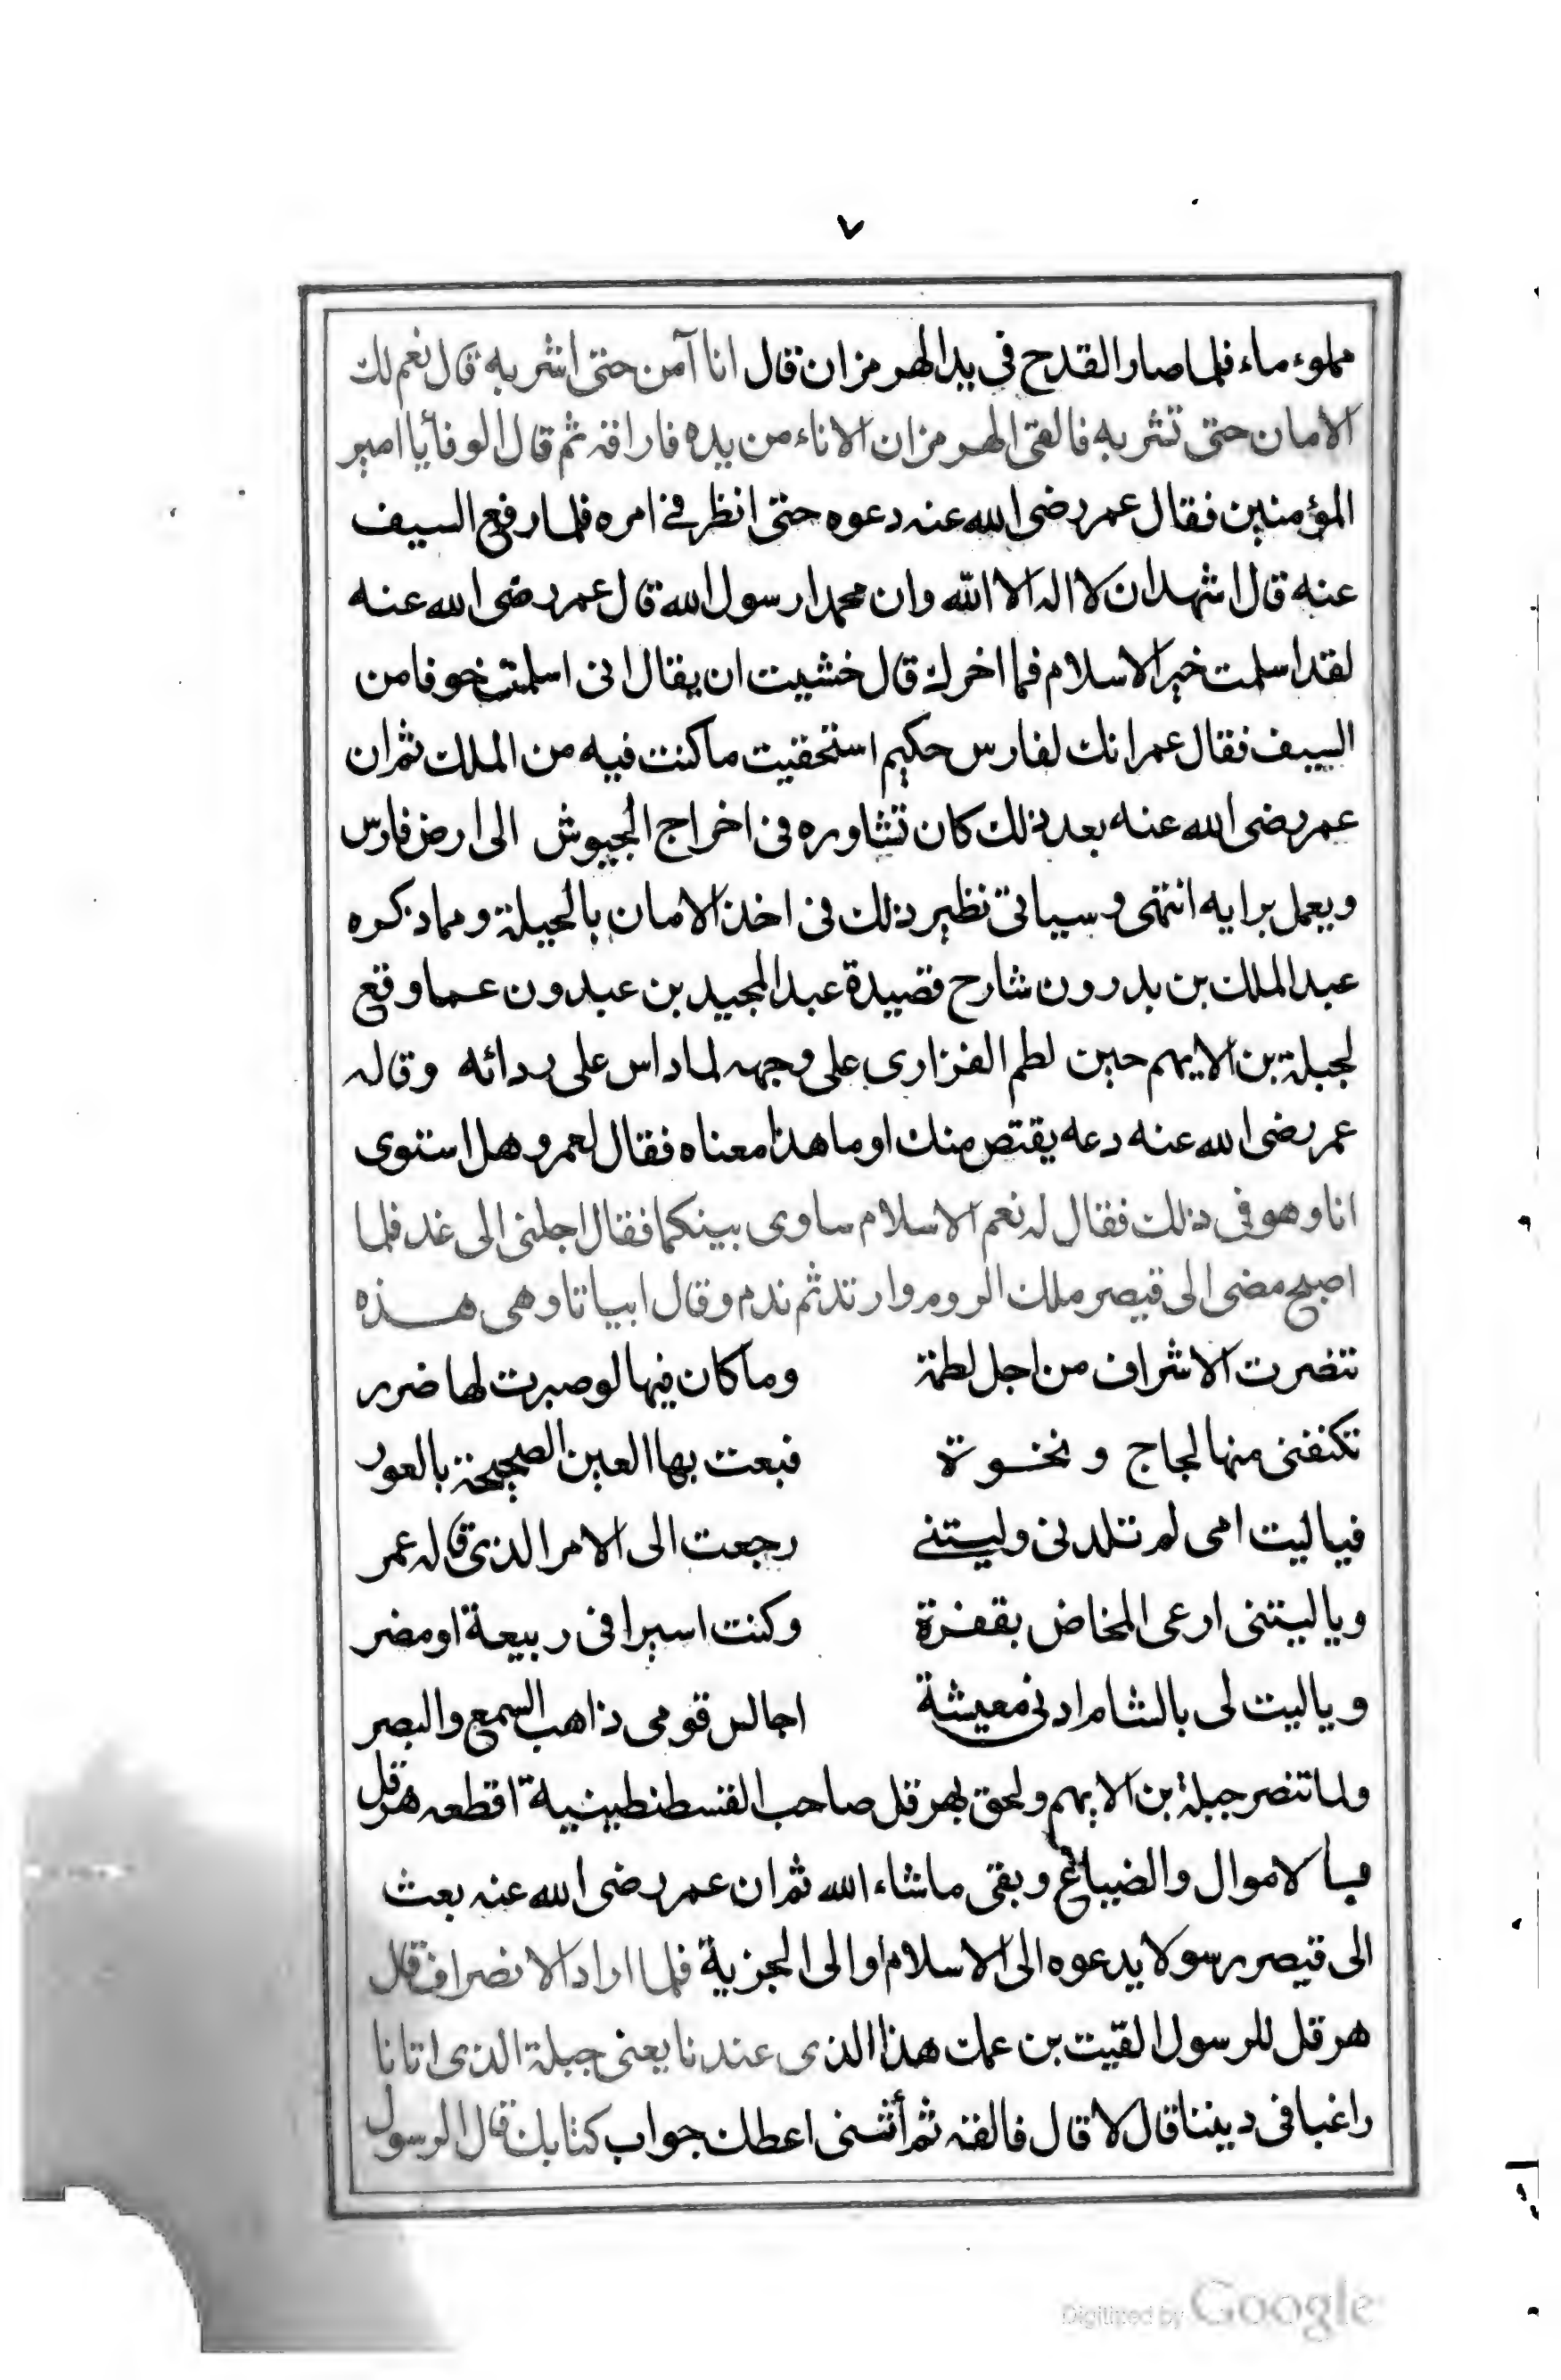 ٧
مملوء ماء فلما صار القدح في يد الهرمزان قال انا آمن حتى اشربه قال نعم لك
الامان حتى تشربه فالقى الهرمزان الاناء من يده فاراقه ثم قال الوفأ يا امير
المؤمنين فقال عمر رضى الله عنه دعوه حتى انظر في امره فلما رفع السيف
عنه قال اشهد ان لا اله الا الله وان محمدا رسول الله قال عمر رضى الله عنه
لقد اسلمت خير الاسلام فما اخرك قال خشيت ان يقال انى اسلمت خوفا من
السيف فقال عمر انك لفارس حكيم استحقيت ما كنت فيه من الملك ثم ان
عمر رضى الله عنه بعد ذلك كان تشاوره فى اخراج الجيوش الى ارض فارس
ويعمل برايه انتهى وسياتى نظير ذلك فى اخذ الامان بالحيلة ومما ذكره
عبد الملك بن بدرون شارح قصيدة عبد المجيد بن عبدون عما وقع
لجبلة بن الايهم حين لطم الفزارى على وجهه لما داس على ردائه وقاله
عمر رضى الله عنه دعه يقتص منك او ما هذا معناه فقال لعمر وهل استوى
انا وهو فى ذلك فقال له نعم الاسلام ساوى بينكما فقال اجلنى الى غد فلما
اصبح مضى الى قيصر ملك الروم وارتد ثم ندم وقال ابياتا وهى هذه
تنصرت الاشراف من اجل لطمة وما كان فيها لو صبرت لها ضرر
تكنفنى منها لجاج ونخوة فبعت بها العين الصحيحة بالعور
فيا ليت امى لم تلدنى وليتنى رجعت الى الامر الذى قاله عمر
ويا ليتنى ارعى المخاض بقفزة وكنت اسيرا فى ربيعة او مضر
ويا ليت لى بالشام ادنى معيشة اجالس قومى ذاهب السمع والبصر
ولما تنصر جبلة بن الايهم ولحق بهرقل صاحب القسطنطينية اقطعه هرقل
بالاموال والضياع وبقى ما شاء الله ثم ان عمر رضى الله عنه بعث
الى قيصر رسولا يدعوه الى الاسلام او الى الجزية فلما اراد الانصراف قال
هرقل للرسول القيت بن عمك هذا الذى عندنا يعنى جبلة الذى اتانا
راغبا فى ديننا قال لا قال فالقه ثم أئتنى اعطك جواب كتابك قال الرسول
Digitized by Google